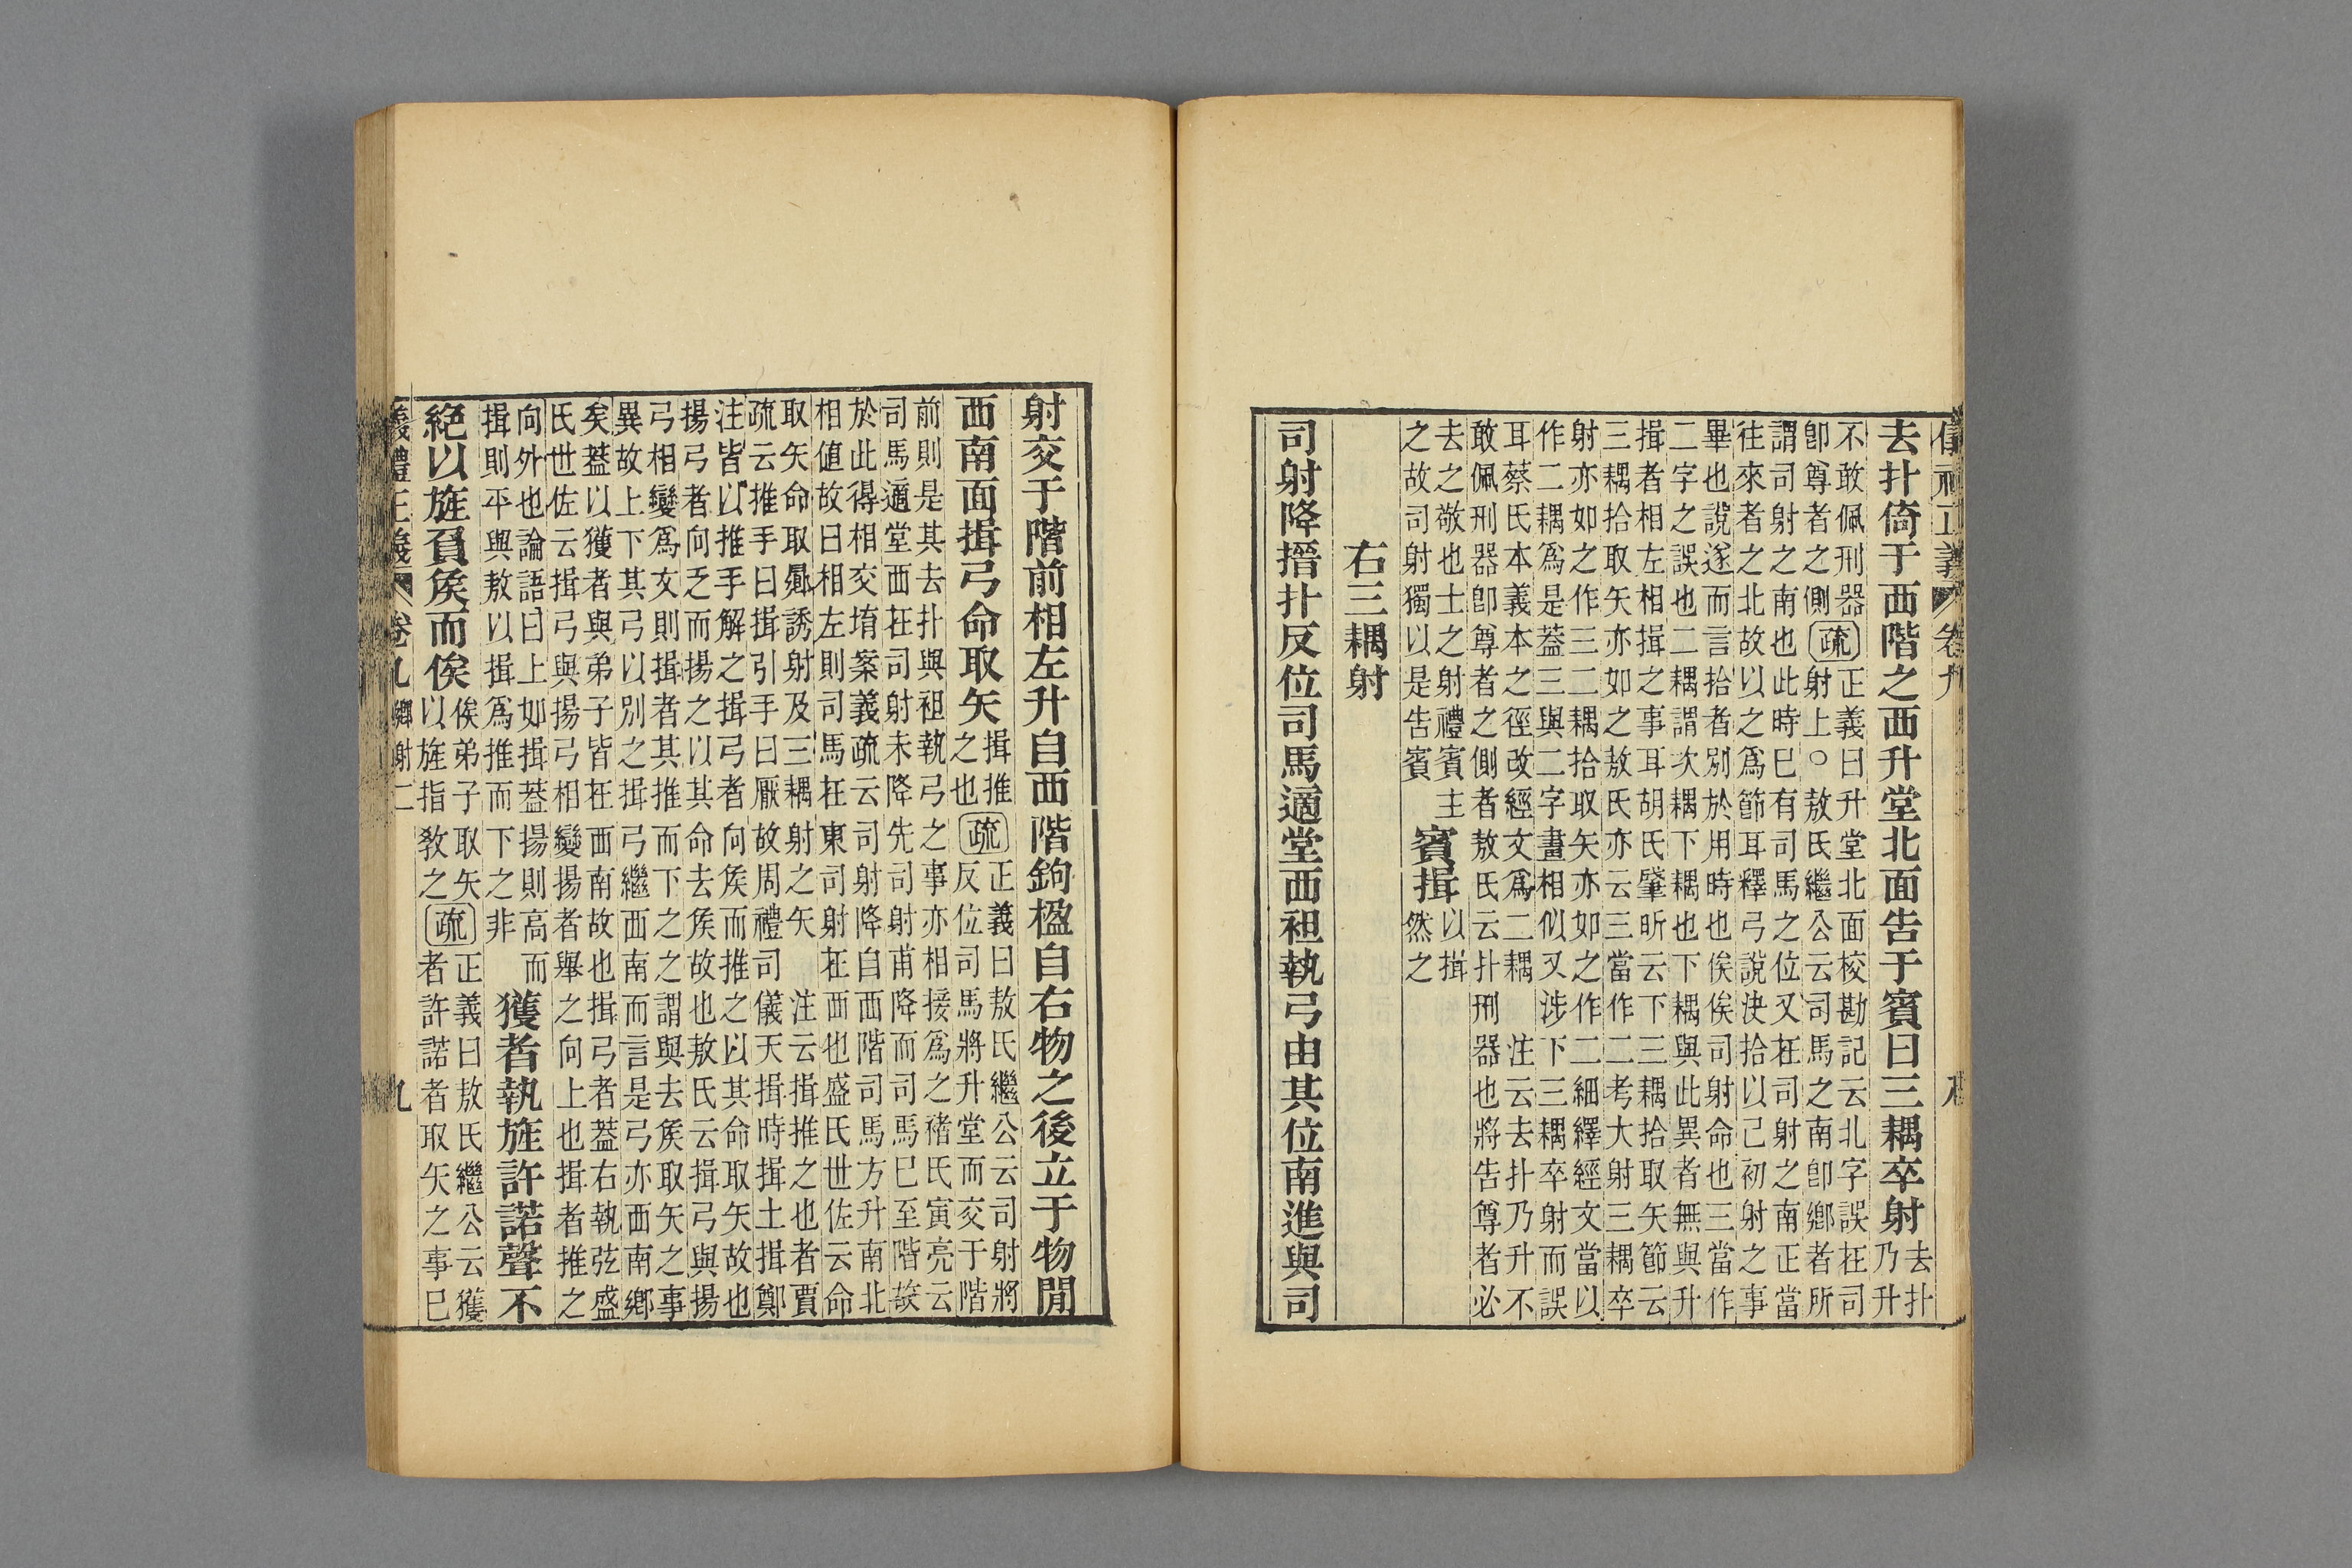 去扑倚于西階之西升堂北面告于賓曰三耦卒射
去扑
乃升
不敢佩刑器
卽尊者之側
疏
正義曰升堂北面校勘記云北字誤在司
射上○敖氏繼公云司馬之南卽鄉者所
謂司射之南也此時巳有司馬之位又在司射之南正當
往來者之北故以之爲節耳釋弓說決拾以己初射之事
畢也說遂而言拾者別於用時也俟俟司射命也三當作
二字之誤也二耦謂次耦下耦也下耦與此異者無與升
揖者相左相揖之事耳胡氏肇昕云下三耦拾取矢節云
三耦拾取矢亦如之敖氏亦云三當作二考大射三耦卒
射亦如之作三二耦拾取矢亦如之作二細繹經文當以
作二耦爲是蓋三與二字畫相似又涉下三耦卒射而誤
耳蔡氏本義本之徑改經文爲二耦　注云去扑乃升不
敢佩刑器卽尊者之側者敖氏云扑刑器也將告尊者必
去之敬也士之射禮賓主
之故司射獨以是告賓
賓揖
以揖
然之
右三耦射
司射降搢扑反位司馬適堂西袒執弓由其位南進與司
射交于階前相左升自西階鉤楹自右物之後立于物閒
西南面揖弓命取矢
揖推
之也
疏
正義曰敖氏繼公云司射將
反位司馬將升堂而交于階
前則是其去扑與袒執弓之事亦相接爲之褚氏寅亮云
司馬適堂西在司射未降先司射甫降而司馬巳至階故
於此得相交堉案義疏云司射降自西階司馬方升南北
相値故曰相左則司馬在東司射在西也盛氏世佐云命
取矢命取曏誘射及三耦射之矢　注云揖推之也者賈
疏云推手曰揖引手曰厭故周禮司儀天揖時揖土揖鄭
注皆以推手解之揖弓者向矦而推之以其命取矢故也
揚弓者向乏而揚之以其命去矦故也敖氏云揖弓與揚
弓相變爲文則揖者其推而下之之謂與去矦取矢之事
異故上下其弓以別之揖弓繼西南而言是弓亦西南鄉
矣蓋以獲者與弟子皆在西南故也揖弓者蓋右執弦盛
氏世佐云揖弓與揚弓相變揚者舉之向上也揖者推之
向外也論語曰上如揖蓋揚則高而
揖則平與敖以揖爲推而下之非
獲者執旌許諾聲不
絕以旌負矦而俟
俟弟子取矢
以旌指敎之
疏
正義曰敖氏繼公云獲
者許諾者取矢之事巳
儀禮正義　卷九　鄉射二　九